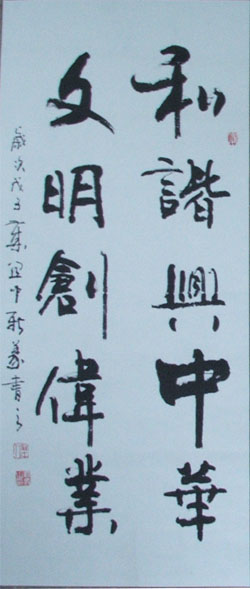 和諧興中華
文明創偉業
歲次戊子
書